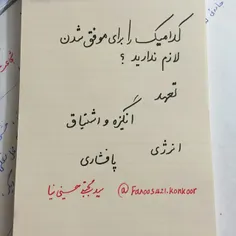 کدامیک را برای موفق شدن
لازم ندارید ؟
تعهد
انگیزه و اشتیاق
انرژی
پافشاری
@Fanoosazi.konkoor سید مجتبی حسینی نیا